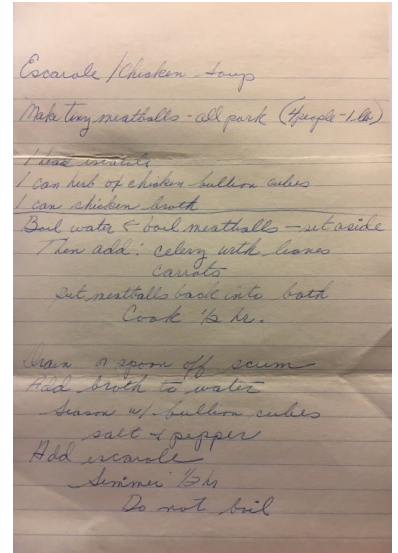 Escarole / Chicken Soup
Make tiny meatballs - all pork (4 people - 1 lb)
1 head escarole
1 can herb of chicken bullion cubes
1 can chicken broth
Boil water & boil meatballs - set aside
Then add: celery with leaves
carrots
put meatballs back into
Cook 1/2 hr.
Drain or spoon off scum
Add broth to water
Season w/ bullion cubes
salt & pepper
Add escarole
Simmer 1/2 hr
Do not boil